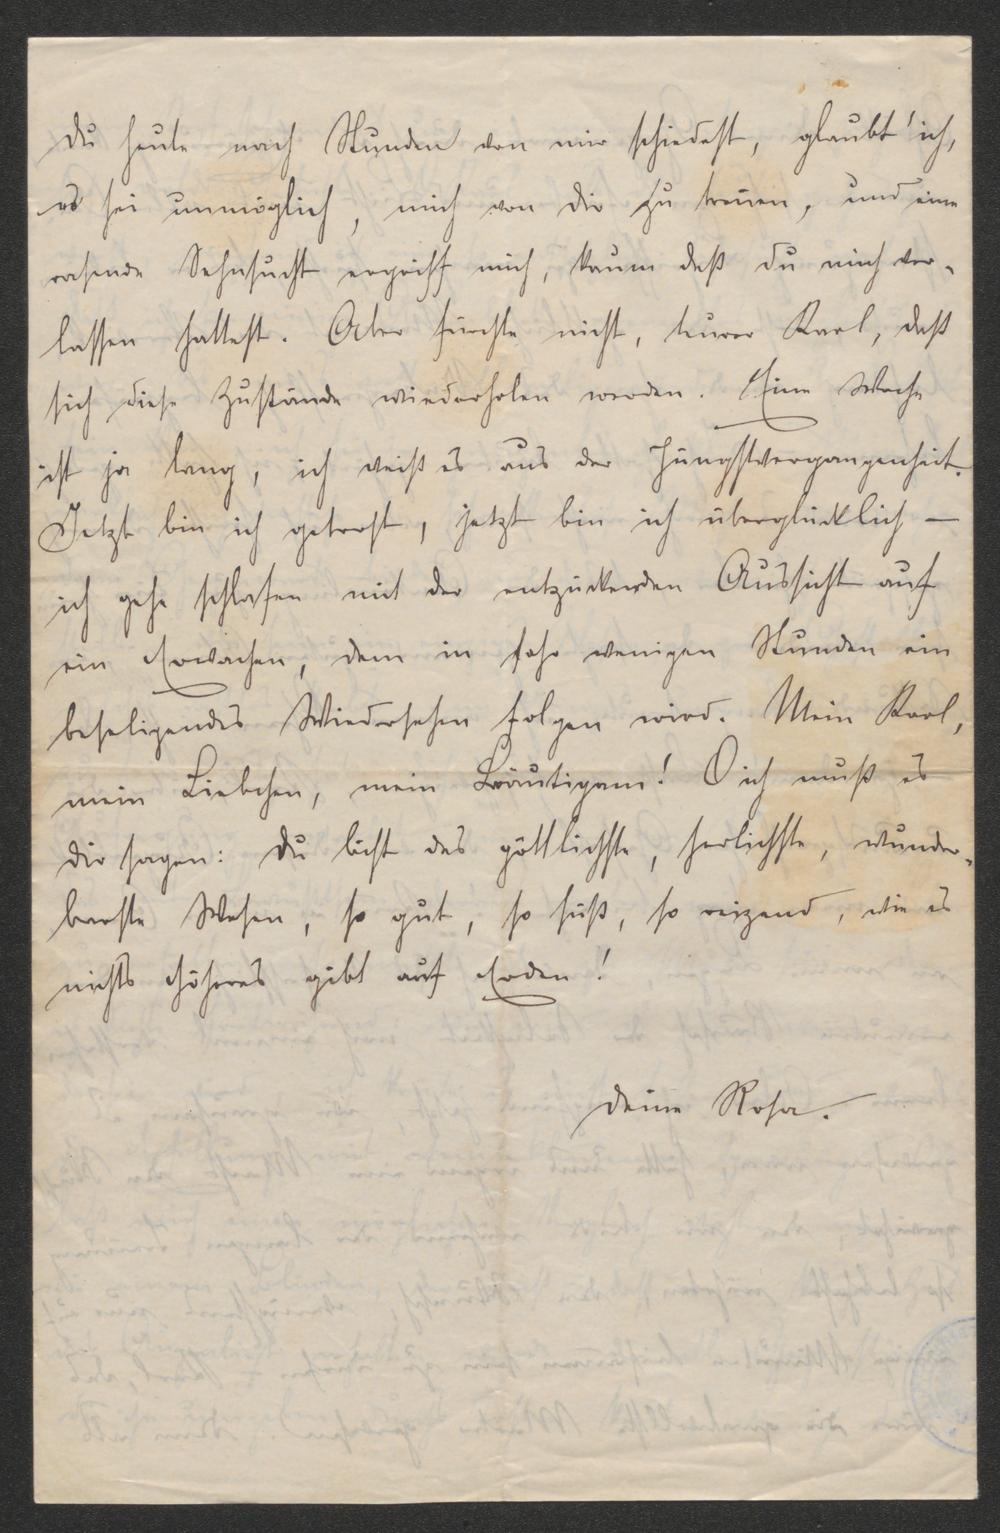 Du heute nach Stunden von mir schiedest, glaubt' ich,
es sei unmöglich, mich von dir zu trennen, und eine
rasende Sehnsucht ergriff mich, kaum daß du mich ver-
lassen hattest. Aber fürchte nicht, teurer Karl, daß
sich diese Zustände wiederholen werden. Eine Woche
ist ja lang, ich weiß es aus der Jüngstvergangenheit.
Jetzt bin ich getrost, jetzt bin ich überglücklich —
ich gehe schlafen mit der entzückenden Aussicht auf
ein Erwachen, dem in sehr wenigen Stunden ein
beseligendes Wiedersehen folgen wird. Mein Karl,
mein Liebchen, mein Bräutigam! O ich muß es
dir sagen: Du bist das göttlichste, herlichste, wunder-
barste Wesen, so gut, so süß, so reizend, wie es
nichts Höheres gibt auf Erden!
Deine Rosa.